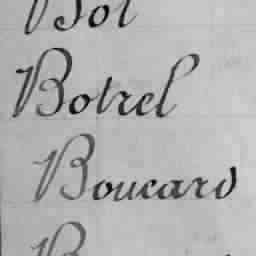 Bot
Botrel
Boucard